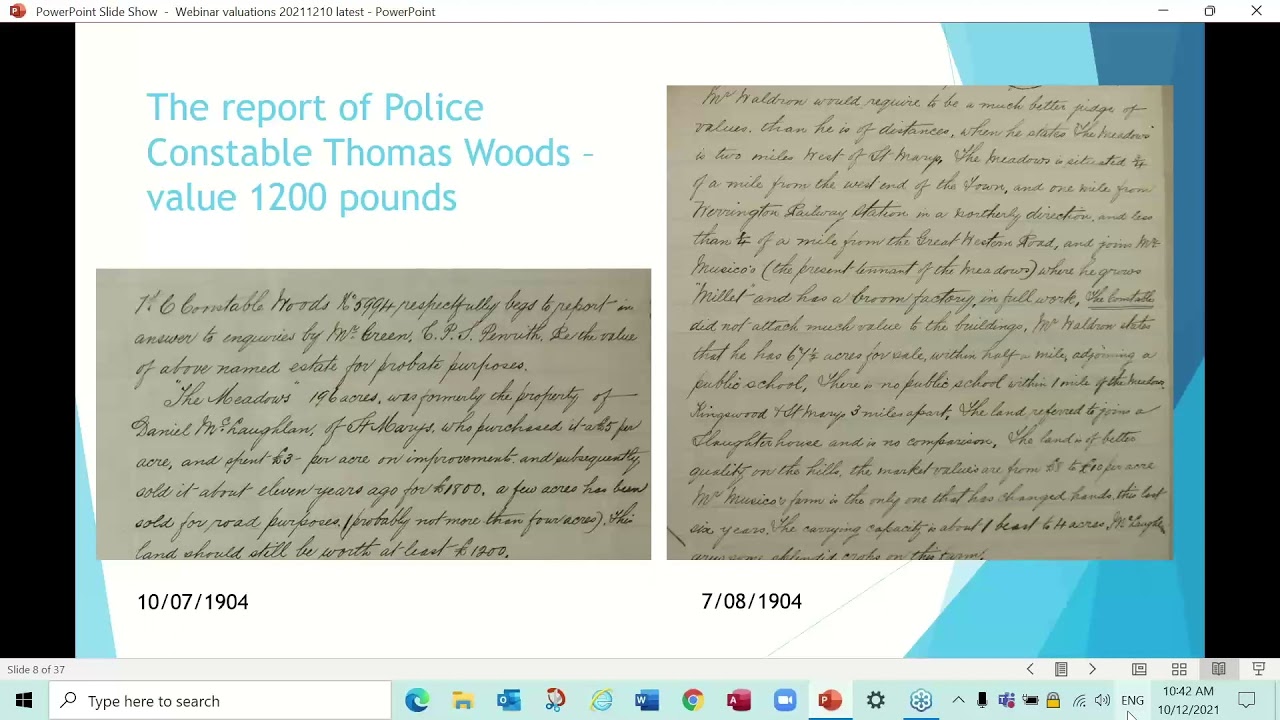 PowerPoint Slide Show - Webinar valuations 20211210 latest - PowerPoint
The report of Police
Constable Thomas Woods –
value 1200 pounds
1st C Constable Woods No 5994 respectfully begs to report in
answer to enquiries by Mr Green, C.P.S. Penrith, Re the value
of above named estate for probate purposes.
"The Meadows" 196 acres, was formerly the property of
Daniel McLaughlan, of St Marys, who purchased it at £5 per
acre, and spent £3- per acre on improvements and subsequently
sold it about eleven years ago for £1800. a few acres has been
sold for road purposes, (probably not more than four acres). This
land should still be worth at least £1200.
10/07/1904
Mr Waldron would require to be a much better judge of
values, than he is of distances, when he states The Meadows
is two miles West of St Marys, The Meadows is situated ¾
of a mile from the west end of the Town, and one mile from
Werrington Railway Station in a northerly direction, and less
than ¼ of a mile from the Great Western Road, and joins Mr
Musico's (the present tennant of the Meadows) where he grows
"Millet" and has a broom factory, in full work. The Constable
did not attach much value to the buildings, Mr Waldron states
that he has acres for sale, within half a mile, adjoining a
public school, There is no public school within 1 mile of the Meadows.
Kingswood & St Marys 3 miles apart. The land referred to joins a
Slaughter house and is no comparison. The land is of better
quality on the hills, the market values are from £8 to £10 per acre
Mr Musico's farm is the only one that has changed hands, this last
six years. The carrying capacity is about 1 beast to 4 acres,
some splendid crops on this farm.
7/08/1904
Slide 8 of 37
Type here to search
ENG
10:42 AM
10/12/2021